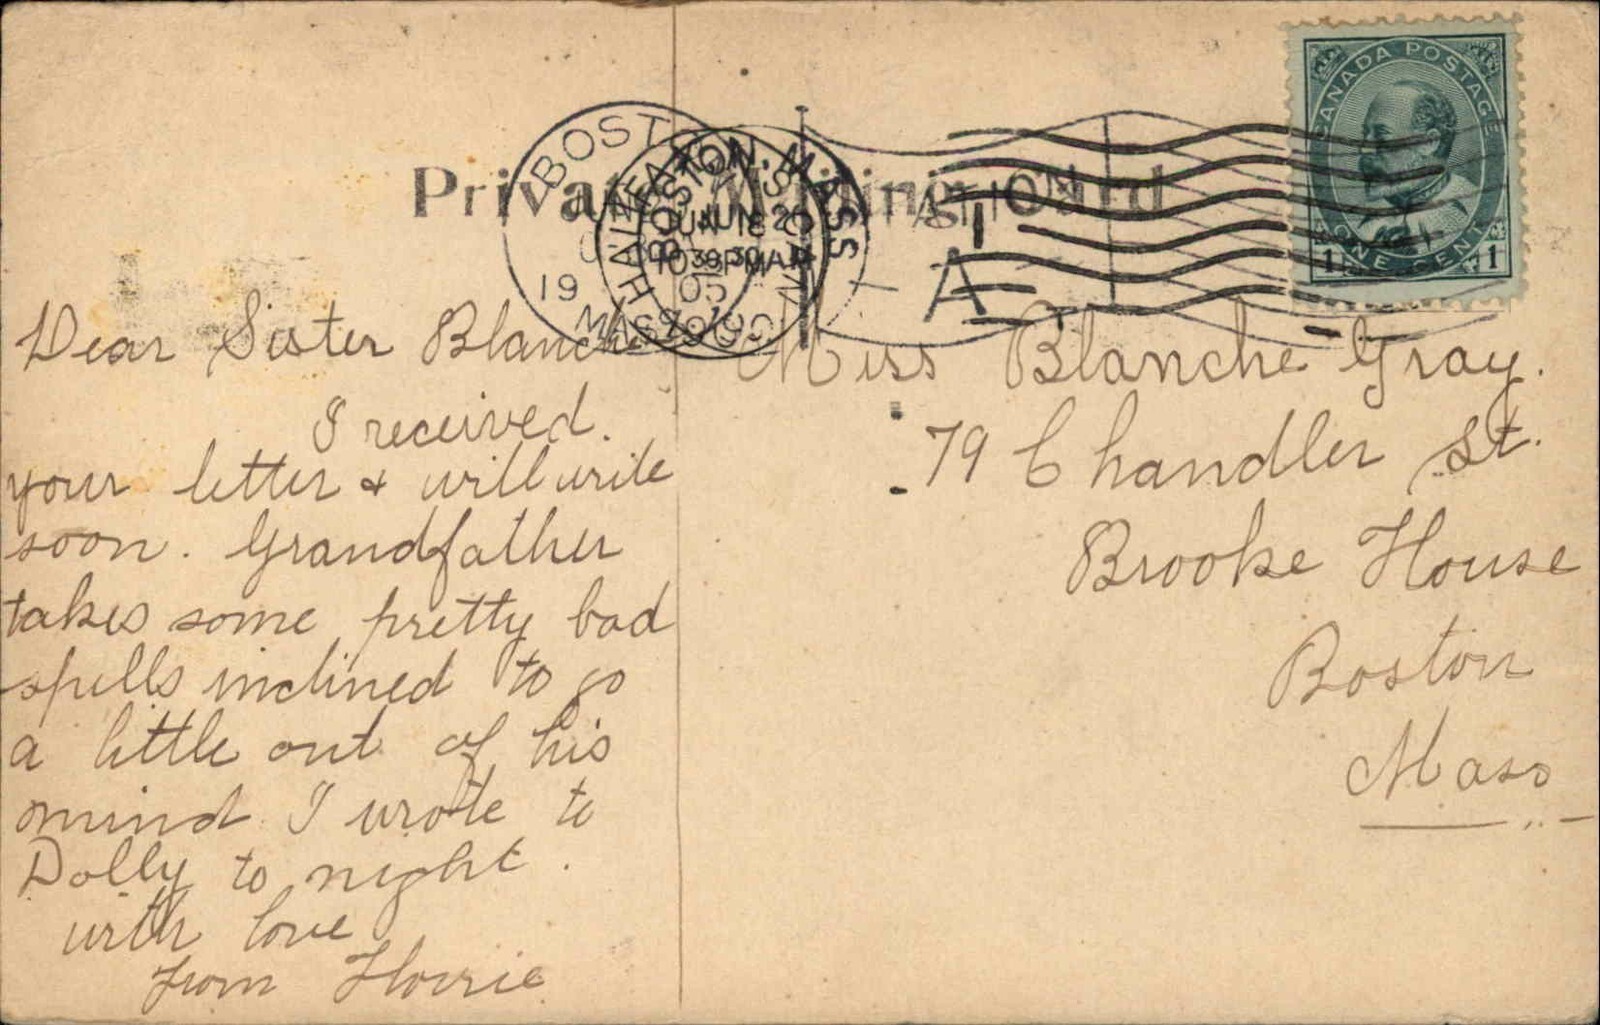 Private Mailing Card
CANADA POSTAGE
1 ONE CENT 1
BOSTON, MASS
HALIFAX
JUN 20
JUN 18
05
19
MASS
A
Dear Sister Blanche
I received
your letter & will write
soon. Grandfather
takes some pretty bad
spells inclined to go
a little out of his
mind I wrote to
Dolly to night.
with love
from
Miss Blanche Gray.
79 Chandler St.
Brooke House
Boston
Mass